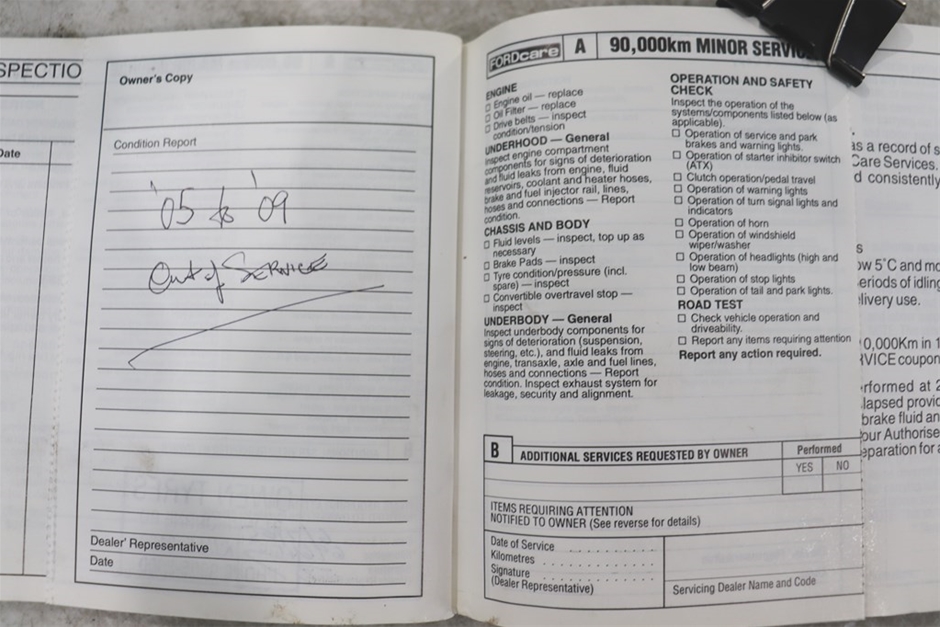 SPECTIO
Date
Owner's Copy
Condition Report
'05 to '09
Out of SERVICE
Dealer' Representative
Date
FORDcare A 90,000km MINOR SERVIC
ENGINE
Engine oil — replace
Oil Filter — replace
Drive belts — inspect
condition/tension
UNDERHOOD — General
Inspect engine compartment
components for signs of deterioration
and fluid leaks from engine, fluid
reservoirs, coolant and heater hoses,
brake and fuel injector rail, lines,
hoses and connections — Report
condition.
CHASSIS AND BODY
Fluid levels — inspect, top up as
necessary
Brake Pads — inspect
Tyre condition/pressure (incl.
spare) — inspect
Convertible overtravel stop —
inspect
UNDERBODY — General
Inspect underbody components for
signs of deterioration (suspension,
steering, etc.), and fluid leaks from
engine, transaxle, axle and fuel lines,
hoses and connections — Report
condition. Inspect exhaust system for
leakage, security and alignment.
OPERATION AND SAFETY
CHECK
Inspect the operation of the
systems/components listed below (as
applicable).
Operation of service and park
brakes and warning lights.
Operation of starter inhibitor switch
(ATX)
Clutch operation/pedal travel
Operation of warning lights
Operation of turn signal lights and
indicators
Operation of horn
Operation of windshield
wiper/washer
Operation of headlights (high and
low beam)
Operation of stop lights
Operation of tail and park lights.
ROAD TEST
Check vehicle operation and
driveability.
Report any items requiring attention
Report any action required.
B ADDITIONAL SERVICES REQUESTED BY OWNER
Performed
YES NO
ITEMS REQUIRING ATTENTION
NOTIFIED TO OWNER (See reverse for details)
Date of Service
Kilometres
Signature
(Dealer Representative)
Servicing Dealer Name and Code
as a record of s
Care Services.
d consistently
s
ow 5°C and mo
eriods of idling
livery use.
0,000Km in 1
RVICE coupon
rformed at 2
lapsed provid
brake fluid an
our Authorise
eparation for a